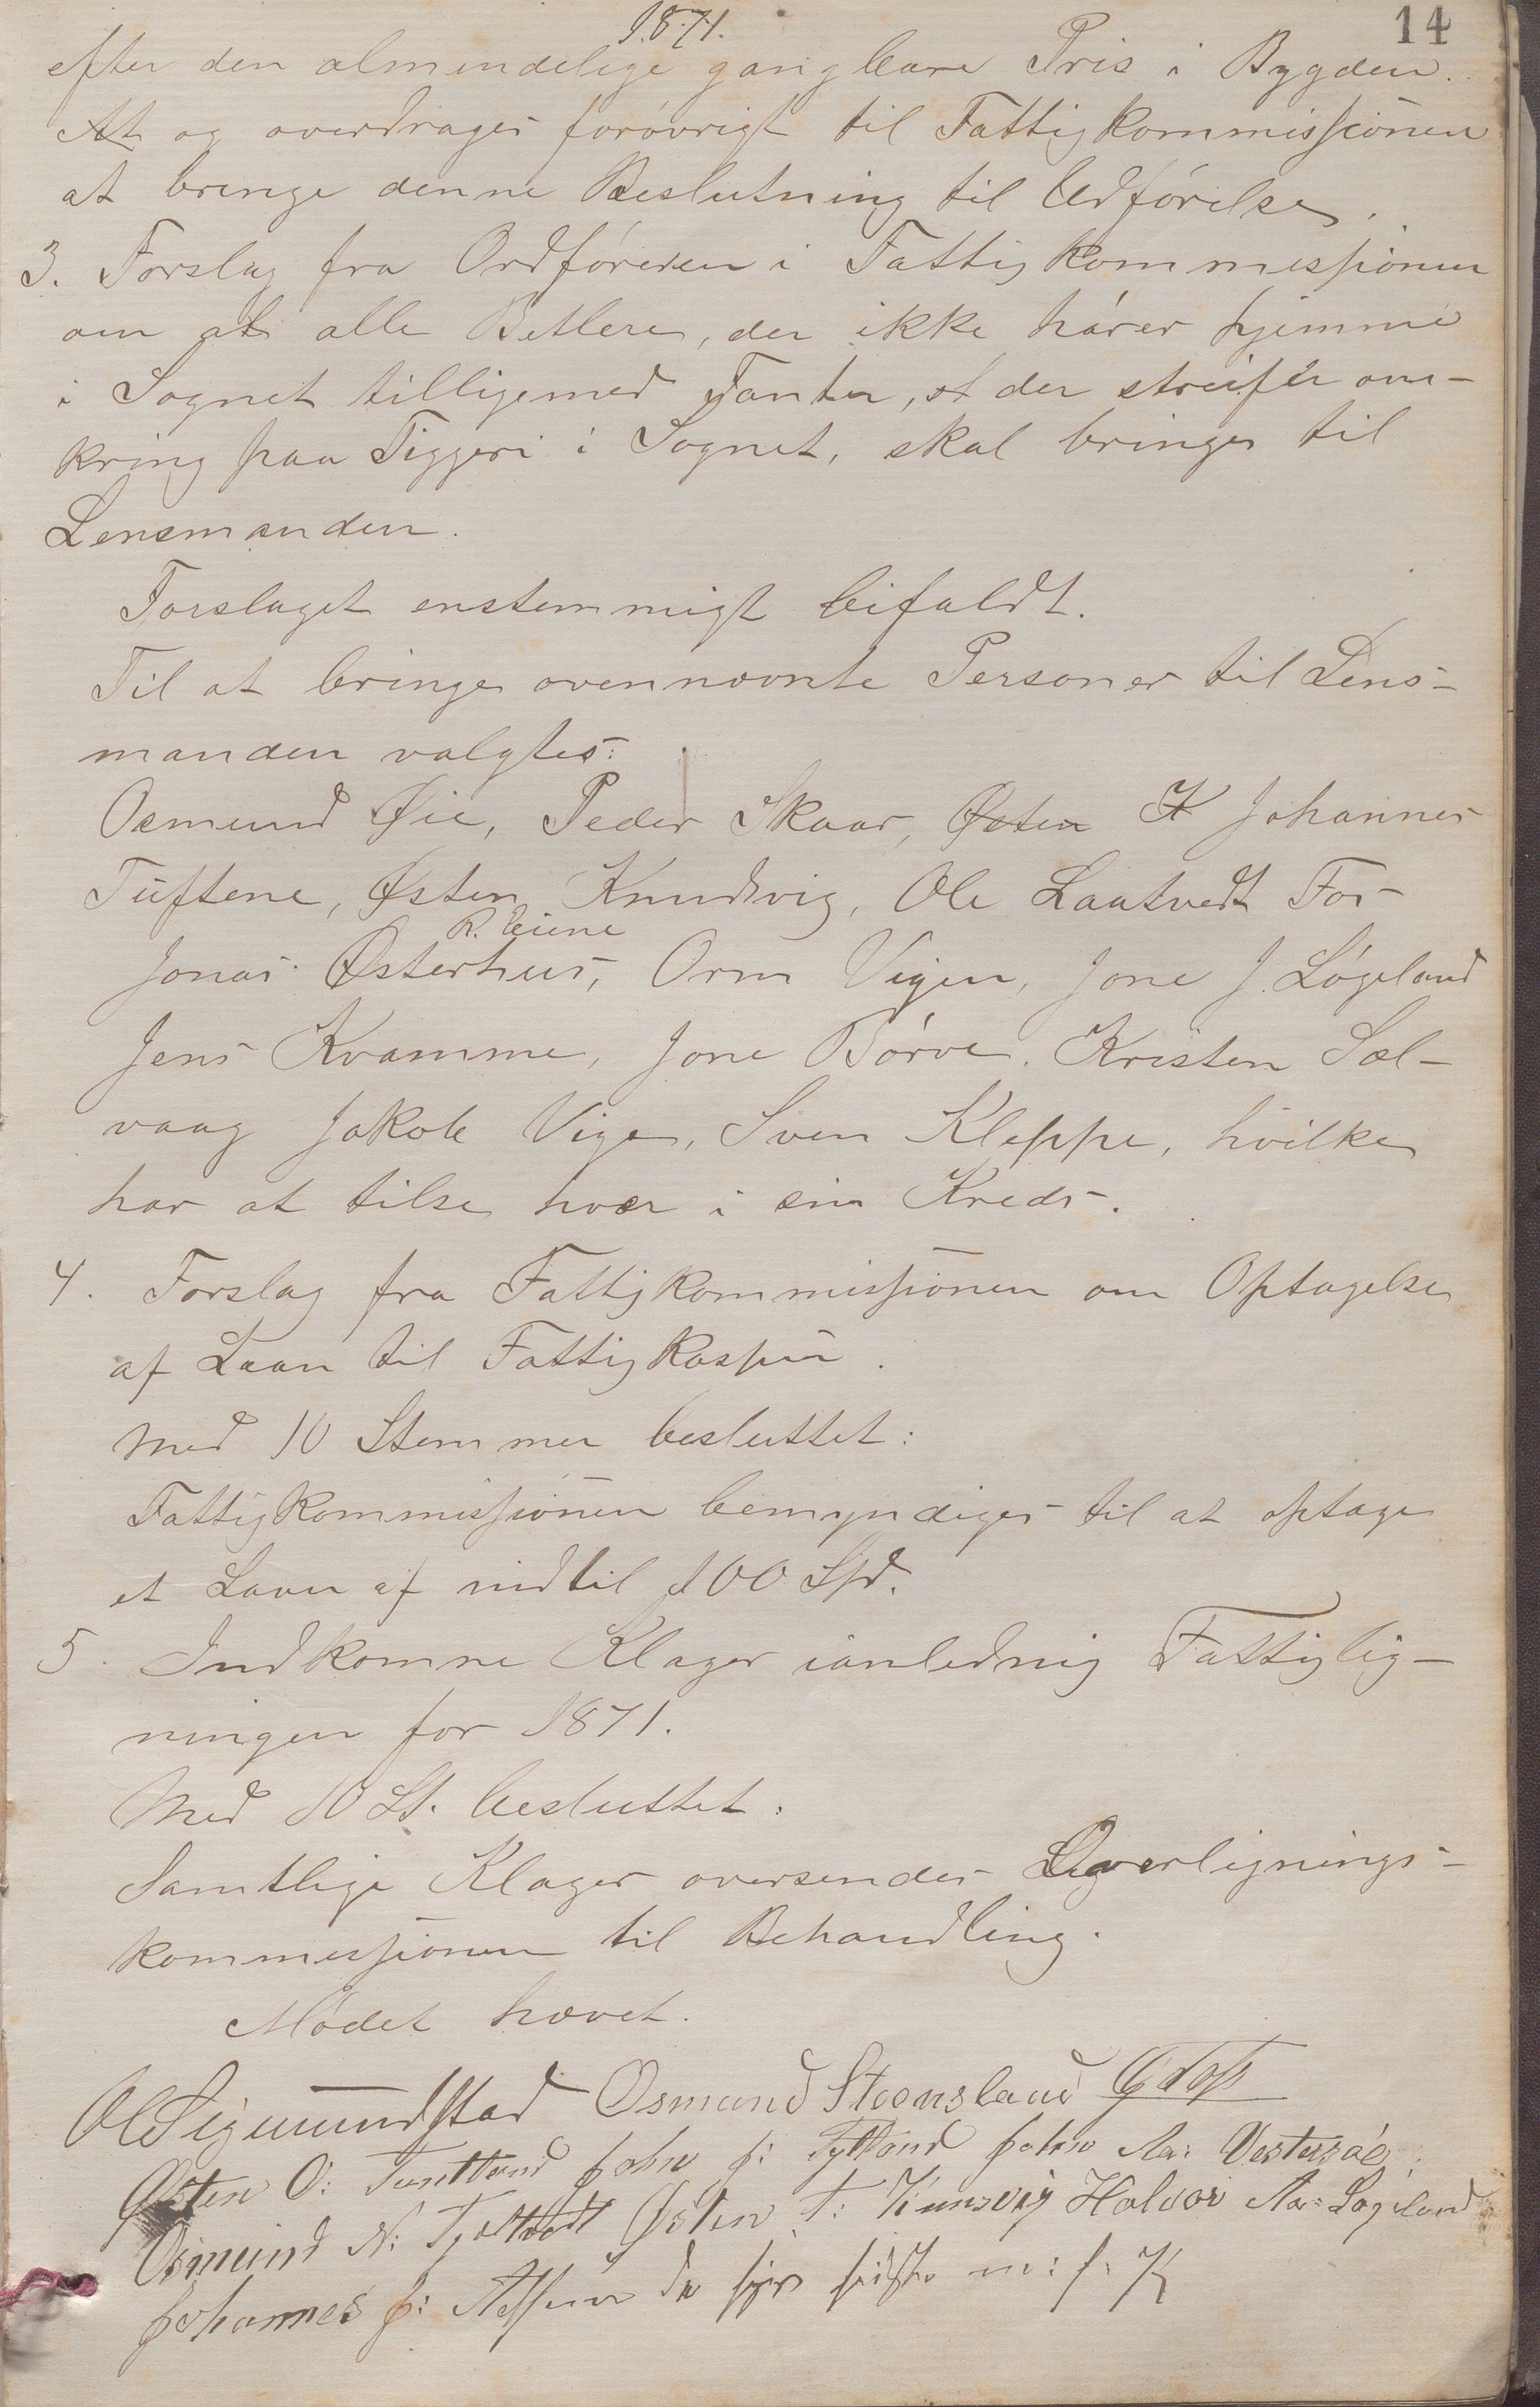 1871.
14
efter den almindelige gangbare Pris i Bygden.
At og overdrages forøvrigt til Fattigkommissionen
at bringe denne Beslutning til Udførelse.
3. Forslag fra Ordføreren i Fattigkommissionen
om at alle Betlere, der ikke hører hjemme
i Sognet tilligemed Fanter, der streifer om-
kring paa Tiggeri i Sognet, skal bringes til
Lensmanden.
Forslaget enstemmigt bifaldt.
Til at bringe ovennævnte Personer til Lens-
manden valgtes:
Osmund Øie, Peder Skaar, Østen K Johannes
Tuftene, Østen Knudsvig, Ole Laatvedt For-
R. Eiene
Jonas Østerhus, Orm Vigen, Jone J. Løgeland
Jens Kvamme, Jone Børve, Kristen Sæl-
vaag Jakob Vige, Sven Kleppe, hvilke
har at tilse hver i sin Kreds.
4. Forslag fra Fattigkommissionen om Optagelse
af Laan til Fattigkassen.
Med 10 Stemmer besluttet:
Fattigkommissionen bemyndiges til at optage
et Laan af indtil 100 Spd.
5. Indkomne Klager ianledning Fattiglig-
ningen for 1871.
Med 10 St. besluttet:
Samtlige Klager oversendes Overlignings-
kommissionen til Behandling.
Mødet hævet.
Ol Sigmundstad Osmund Steensland
Østen O: Tuntland John J: Tytland John Aa: Vestersøe
Osmund N: Tjeltvedt Østen T: Kunsvig Halvor Aa: Løgeland
Johannes J: